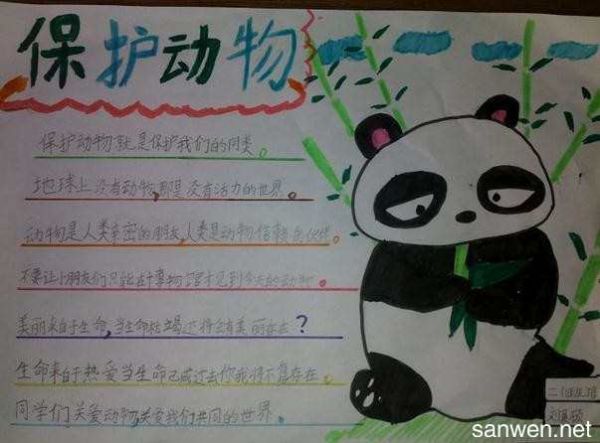 保护动物
保护动物就是保护我们的同类。
地球上没有动物,那里没有活力的世界。
动物是人类亲密的朋友,人类是动物信赖的伙伴。
不要让小朋友们只能去博物馆才见到今天的动物。
美丽来自于生命,当生命枯竭还将会有美丽存在?
生命来自于热爱当生命已成过去你我将不复存在。
同学们,关爱动物,关爱我们共同的世界。
sanwen.net